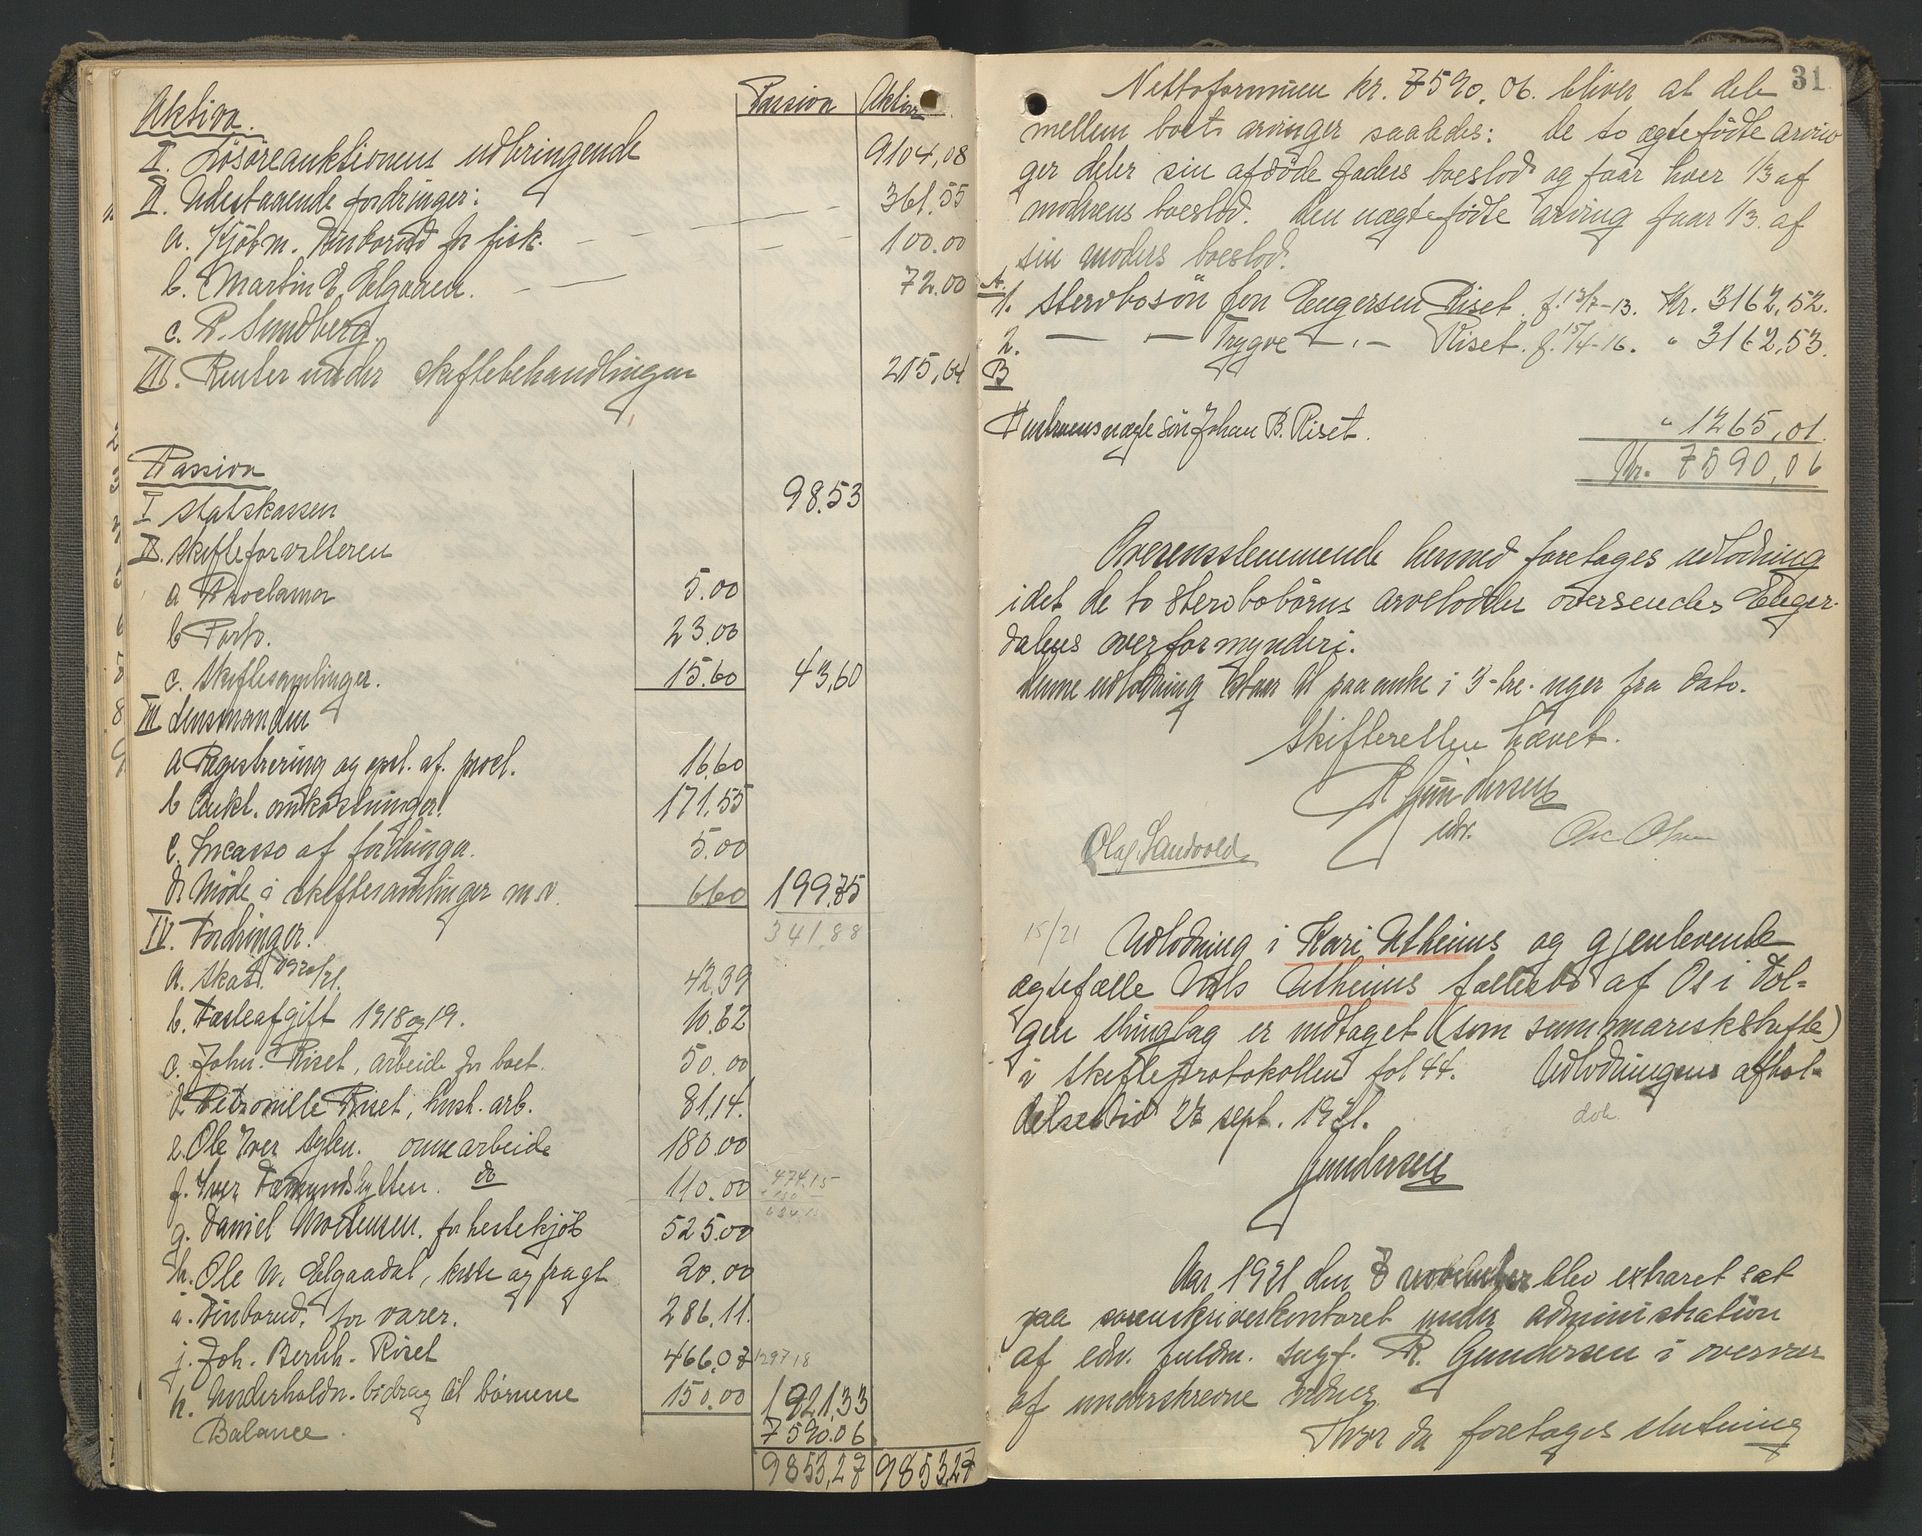 Passiva Aktiva.
Aktiva.
I. Løsøreauktionens udbringende 9104,08
II. Udestaaende fordringer: 361.55
a. Kjøbm. Vinborud for fisk. 100.00
b. Martin E. Elgaaen. 72.00
c. R. Sundberg.
III. Renter under skiftebehandlingen 215,64
Passiva
I Statskassen 98.53
II. Skifteforvalteren
a Proclama 5.00
b Porto. 23.00
c. Skiftesamlinger. 15.60 43,60
III Lensmanden
a Registrering og opsl. af. procl. 16.60
b Aukt. omkostninger. 171.55
c. Incasso af fordringer. 5.00
d. Møde i skiftesamlinger m.v. 6.60 199.75
341.88
IV. Fordringer.
a. Skat. 1920/21. 42,39
b. Fæsteafgift 1918 og 19. 10.62
c. John. Riset, arbeide for boet. 50.00
d. Petronille Riset, hush. arb. 81,14.
e. Ole Iver Sylen. onnearbeide 180.00
f. Iver Femundshytten. do 110.00 474.15
g. Daniel Mortensen. for hestekjøb 525.00
h. Ole N. Elgaadal, kiste og fragt 20.00
i. Vinborud, for varer. 286.11.
j. Joh. Bernh. Riset 466.07 1297 18
k. Underholdn. bidrag til børnene 150.00 1921,33
Balance. 7590.06
9853,27 9853,27
31
Nettoformuen kr. 7590,06. bliver at dele
mellem boets arvinger saaledes: De to ægtefødte arvin
ger deler sin afdøde faders boeslod og faar hver 1/3 af
moderens boeslod. Den uægtefødte arving faar 1/3. af
sin moders boeslod.
A.
1. Stervbosøn Jon Engersen Riset. f. 13/7-13. Kr. 3162,52.
2. — — Trygve — „ — Riset. f. 15/4-16. " 3162,53.
B
Hustruens uægte søn Johan B. Riset. " 1265,01.
Kr. 7590,06
Overensstemmende hermed foretages udlodning
idet de to stervbobørns arvelodder oversendes Enger-
dalens overformynderi.
Denne udlodning staar til paaanke i 3-tre-uger fra dato.
Skifteretten hævet.
R Gundersen
edv.
Olaf Sandvold Osc Olsen
15/21
Udlodning i Kari Utheims og gjenlevende
ægtefælle Nils Utheims fællesbo af Os i Tol-
gen thinglag er indtaget (som summariskskifte)
i skifteprotokollen fol 44. Udlodningens afhol-
delsestid 27 sept. 1921.
Gundersen
Aar 1921 den 8 november blev extraret sat
paa sorenskriverkontoret under administration
af edv. fuldm. sagf. R. Gundersen i overvær
af underskrevne vidner
Hvor da foretoges slutning